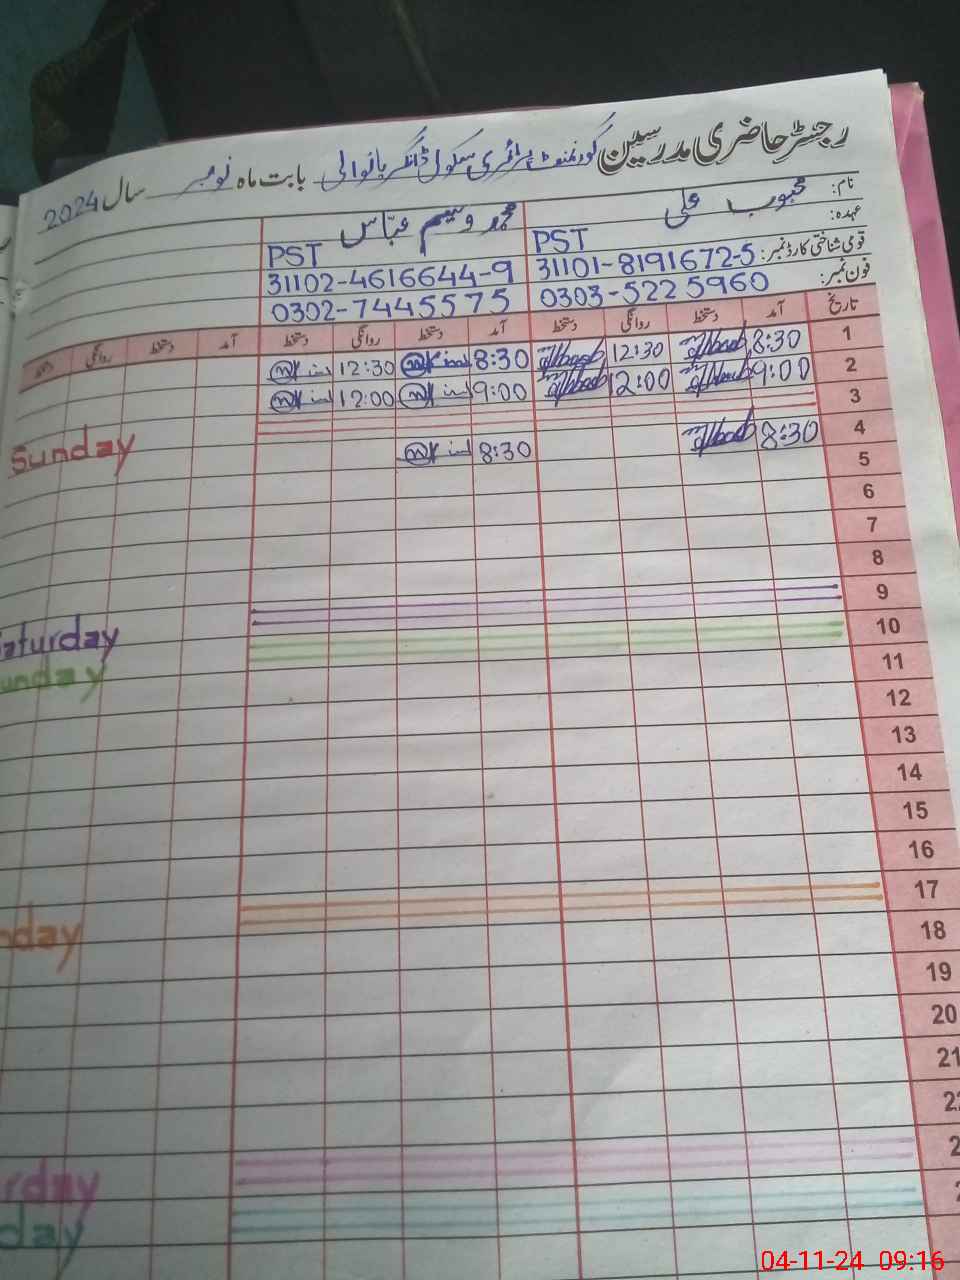 رجسٹر حاضری مدرسین گورنمنٹ پرائمری سکول ڈانگر بانوالی بابت ماہ نومبر سال 2024
نام: محبوب علی محمد وسیم عباس
عہدہ: PST PST
قومی شناختی کارڈ نمبر: 31101-8191672-5 31102-4616644-9
فون نمبر: 0303-5225960 0302-7445575
تاریخ آمد دستخط روانگی دستخط آمد دستخط روانگی دستخط آمد دستخط روانگی دستخط
1 8:30 12:30 8:30 12:30
2 9:00 12:00 9:00 12:00
3 Sunday
4 8:30 8:30
5
6
7
8
9 Saturday
10 Sunday
11
12
13
14
15
16
17 nday
18
19
20
21
22
2 rday
2 day
04-11-24 09:16